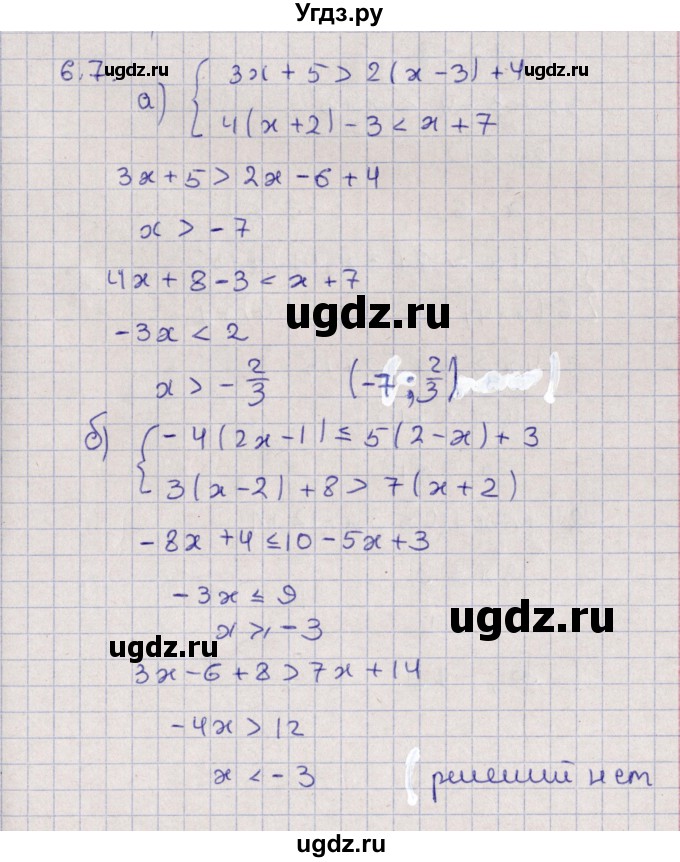 Угдз.ру
6.7 ugdz.ru
а) { 3x + 5 > 2(x - 3) + 4 ugdz.ru
4(x + 2) - 3 < x + 7
3x + 5 > 2x - 6 + 4
x > - 7
4x + 8 - 3 < x + 7
ugdz.ru
- 3x < 2
x > - 2/3 (-7 ; 2/3)
б) { - 4(2x - 1) ≤ 5(2 - x) + 3
3(x - 2) + 8 > 7(x + 2)
- 8x + 4 ≤ 10 - 5x + 3
- 3x ≤ 9
ugdz.ru
x ≥ - 3
ugdz.ru
3x - 6 + 8 > 7x + 14
- 4x > 12
x < - 3 решений нет
ugdz.ru